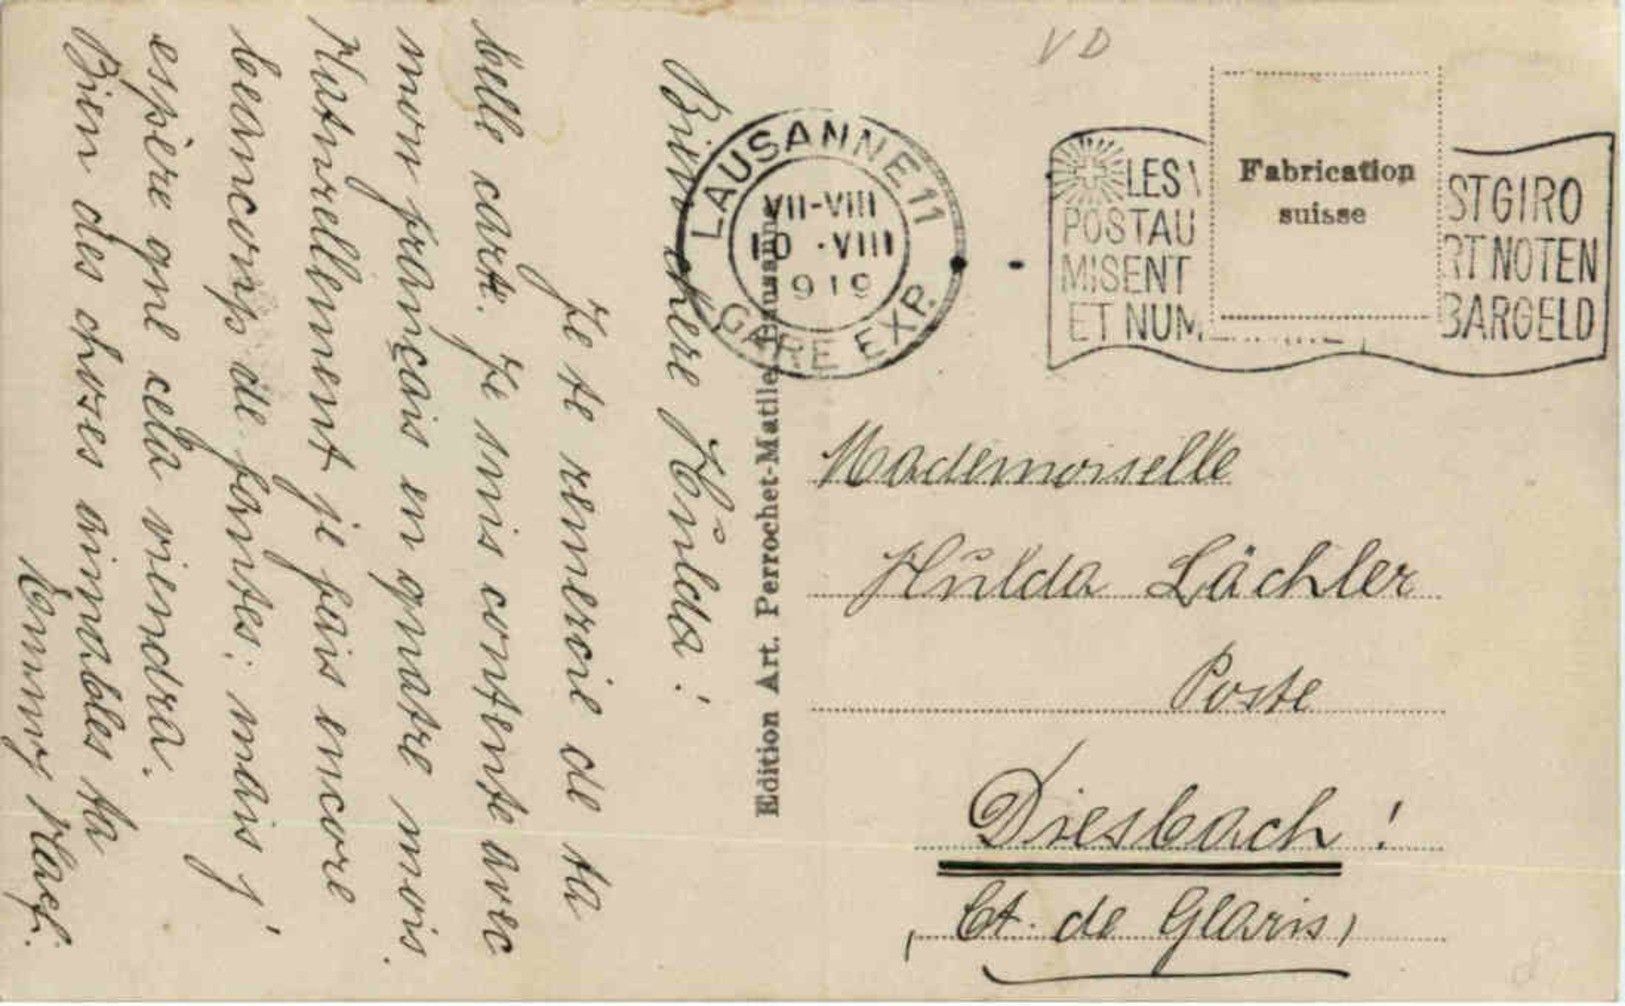 Bien chère Hŭlda!
Je te remercie de ta
belle carte. Je suis contente avec
mon français en quatre mois.
Naturellement je fais encore
beaucoup de fautes: mais j'
espère que cela viendra.
Bien des choses aimables ta
Emmy Naef.
Edition Art. Perrochet-Matile, Lausanne
VD
LAUSANNE 11
VII-VIII
10 · VIII
1919
GARE EXP.
LES
POSTAU
MISENT
ET NUM
Fabrication
suisse
STGIRO
RT NOTEN
BARGELD
Mademoiselle
Hŭlda Lächler
Poste
Diesbach!
Ct. de Glaris,